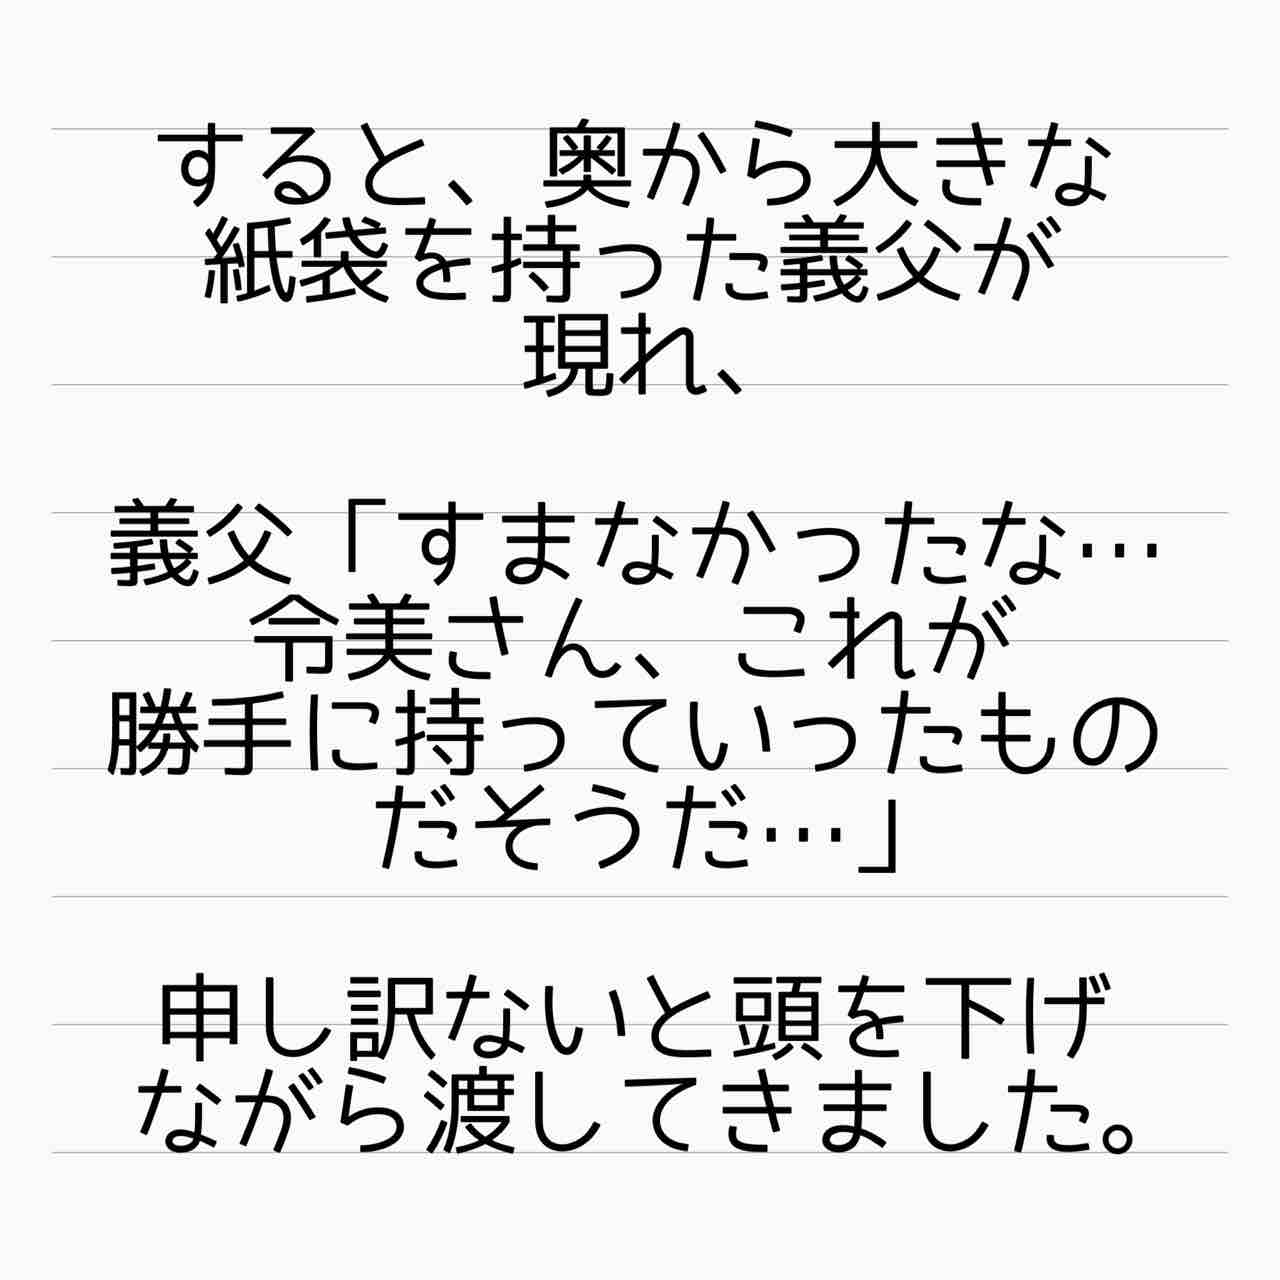 すると、奥から大きな
紙袋を持った義父が
現れ、
義父「すまなかったな…
令美さん、これが
勝手に持っていったもの
だそうだ…」
申し訳ないと頭を下げ
ながら渡してきました。